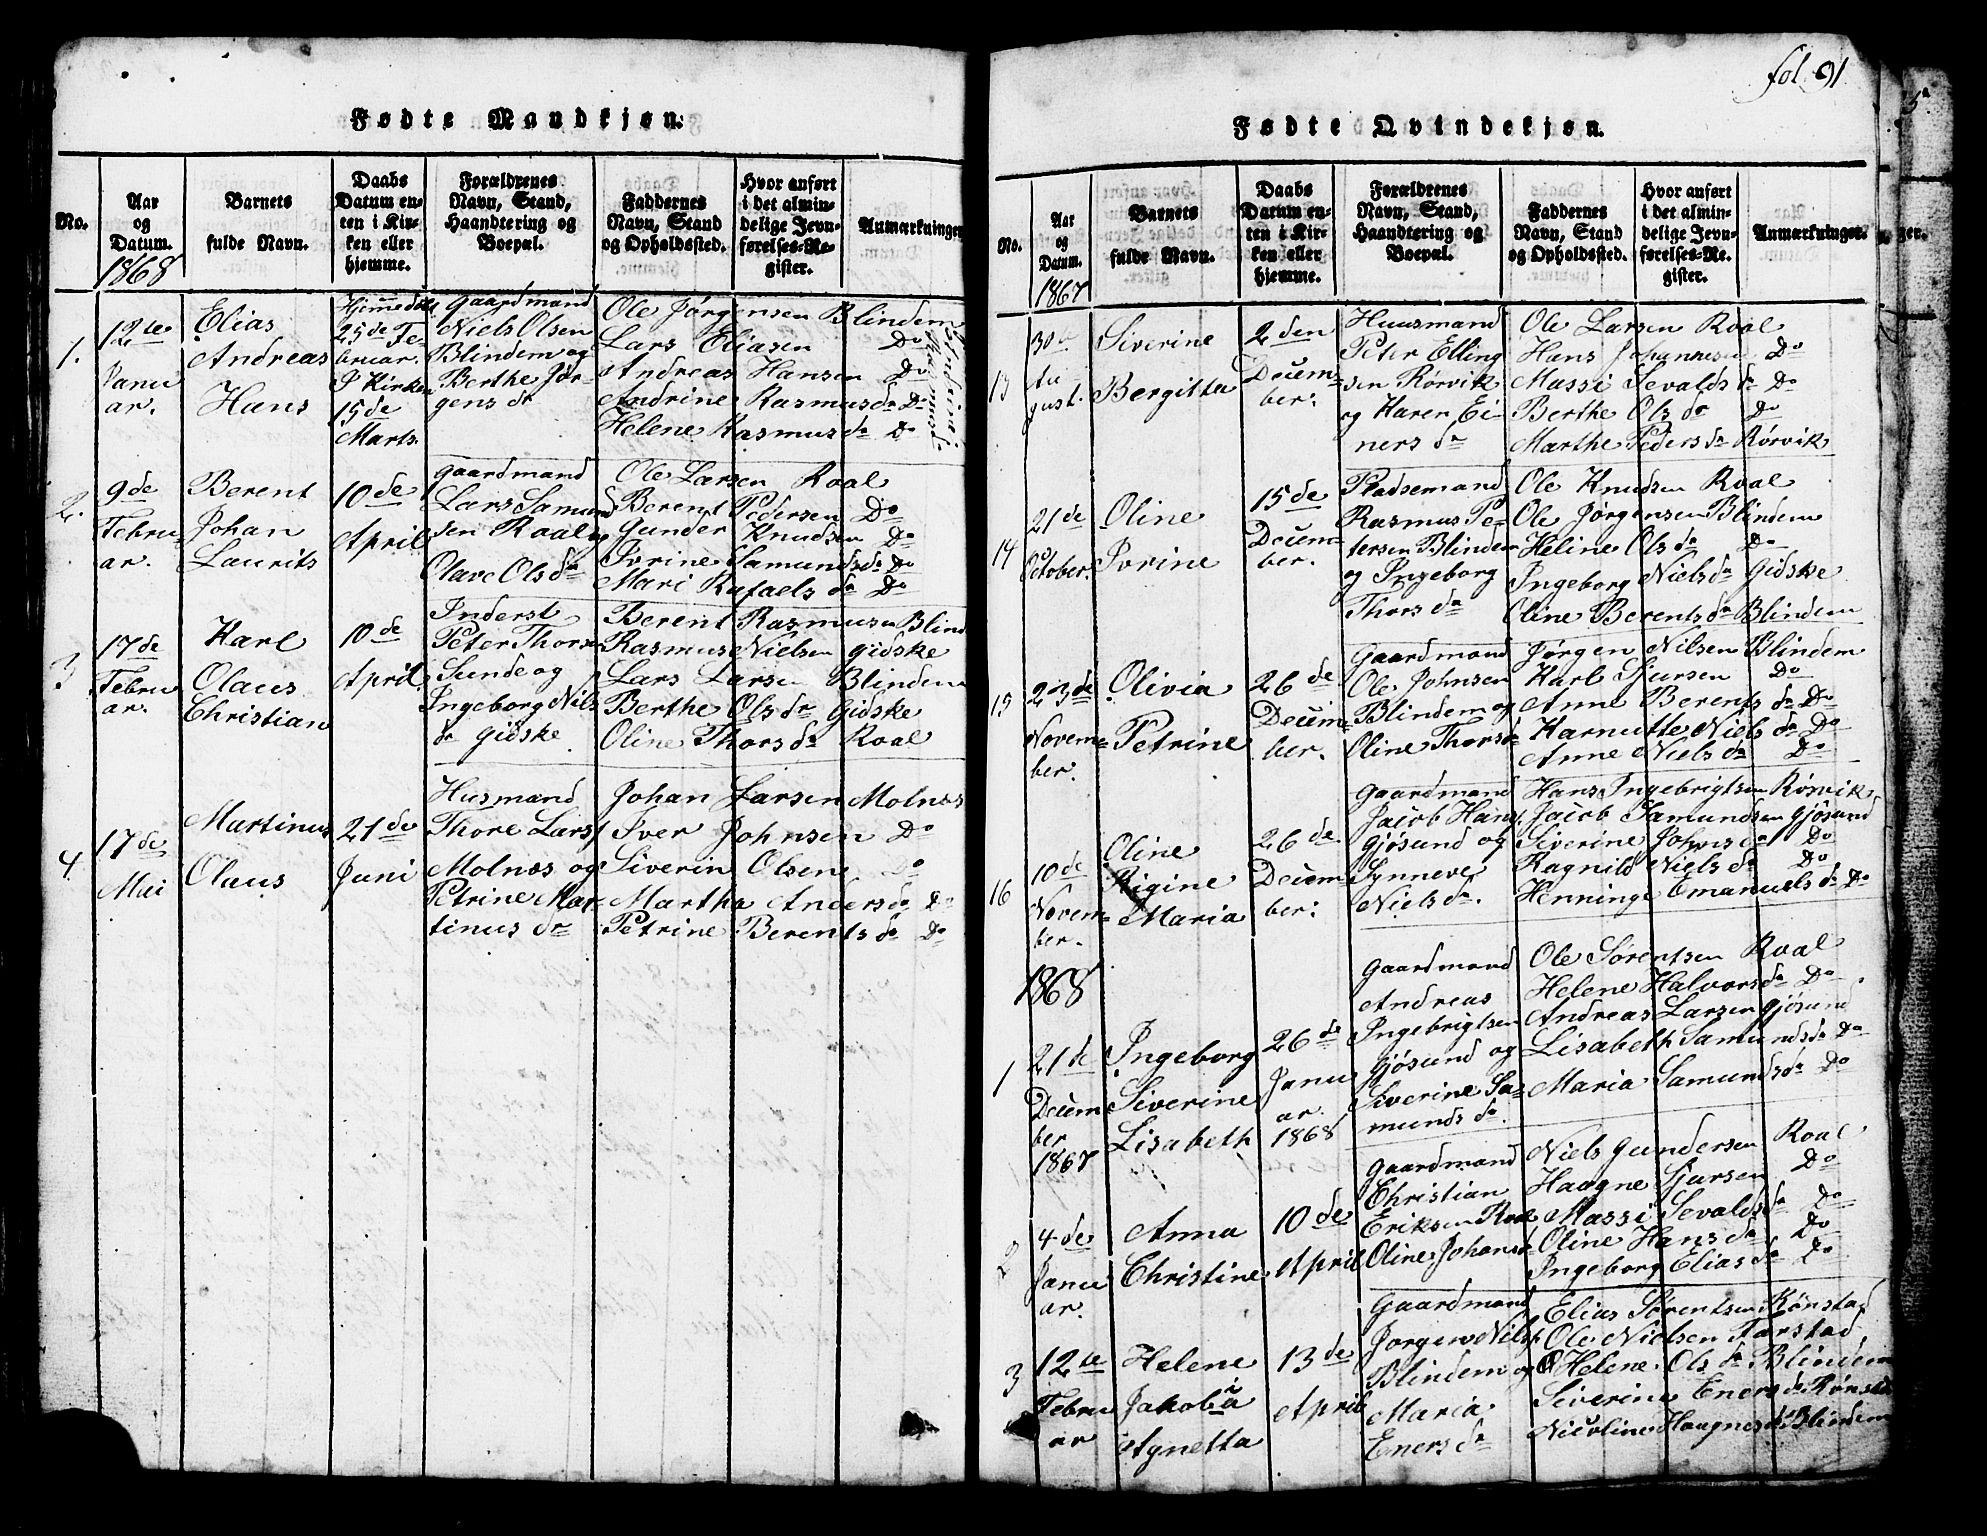 fol. 91.
Fødte Mandkjøn.
No.
Aar og Datum.
1868
Barnets fulde Navn.
Daabs Datum enten i Kirken eller hjemme.
Forældrenes Navn, Stand, Haandtering og Boepæl.
Faddernes Navn, Stand og Opholdssted.
Hvor anført i det almindelige Jevnførelses-Register.
Anmærkninger
1.
12te
Januar.
Elias
Andreas
Hans
Hjemmedøbt
25de Februar.
I Kirken
15de
Marts.
Gaardmand
Niels Olsen
Blindem og
Berthe Jørgens dr
Ole Jørgensen Blindem
Lars Eliasen Do
Andreas Hansen Do
Andrine Rasmus dr Do
Helene Rasmus dr Do
2.
9de
Februar.
Berent
Johan
Laurits
10de
April
Gaardmand
Lars Samundsen Roal og
Olave Ols dr
Ole Larsen Roal
Berent Pedersen Do
Gunder Knudsen Do
Ivrine Samunds dr Do
Mari Rafaels dr Do
3
17de
Februar.
Karl
Olaus
Christian
10de
April.
Inderst
Peter Thorsen
Sunde og
Ingeborg Nils
dr Gidske
Berent Rasmusen Blind
Rasmus Nielsen Gidske
Lars Larsen Blindem
Berthe Ols dr Gidske
Oline Thors dr Roal
4
17de
Mai
Martinus
Olaus
21de
Juni
Husmand
Thore Lars
Molnæs og
Petrine Martinus dr
Johan Larsen Molnæs
Iver Johnsen Do
Siverin Olsen Do
Martha Anders dr Do
Petrine Berents dr Do
Fødte Qvindekjøn.
No.
Aar og Datum.
1867
Barnets fulde Navn.
Daabs Datum enten i Kirken eller hjemme.
Forældrenes Navn, Stand, Haandtering og Boepæl.
Faddernes Navn, Stand og Opholdssted.
Hvor anført i det almindelige Jevnførelses-Register.
Anmærkninger.
13
30te
August.
Siverine
Bergitta
2den
December.
Huusmand
Peter Ellingsen Rørvik
og Karen Einers dr
Ole Larsen Roal
Hans Johannesen Do
Massi Sevalds dr Do
Berthe Ols dr Do
Marthe Peders dr Rørvik
14
21de
October.
Oline
Ivrine
15de
December.
Pladsemand
Rasmus Petersen Blindem
og Ingeborg
Thors dr
Ole Knudsen Roal
Ole Jørgensen Blindem
Heline Ols dr Do
Ingeborg Niels dr Gidske
Oline Berents dr Blindem
15
23de
November.
Olivia
Petrine
26de
December.
Gaardmand
Ole Johnsen
Blindem og
Oline Thors dr
Jørgen Nilsen Blindem
Karl Sjursen Do
Anne Berents dr Do
Karnutte Niels dr Do
Anne Niels dr Do
16
10de
November.
Oline
Rigine
Maria
26de
December.
Gaardmand
Jacob Hans.
Gjøsund og
Synneve
Niels dr.
Hans Ingebrigtsen Rørvik
Jacob Samundsen Gjøsund
Siverine Johns dr Do
Ragnild Niels dr Do
Henninge Emanuels dr Do
1868
1
21de
December
1867
Ingeborg
Siverine
Lisabeth
26de
Januar.
1868
Gaardmand
Andreas
Ingebrigtsen
Gjøsund og
Siverine Samunds dr.
Ole Sørentsen Roal
Helene Halvors dr Do
Andreas Larsen Gjøsund
Lisabeth Samunds dr Do
Maria Samunds dr Do
2
4de
Januar.
Anna
Christine
10de
April
Gaardmand
Christian
Eriksen Roal
Oline Johans dr
Niels Gundersen Roal
Haagne Sjursen Do
Massi Sevalds dr Do
Oline Hans dr Do
Ingeborg Elias dr Do
3
12te
Februar
Helene
Jakobia
Agnetta
13de
April
Gaardmand
Jørgen Nils
Blindem og
Maria
Eners dr
Elias Sørentsen Rønstad
Ole Nielsen Farstad
Helene Ols dr Blindem
Siverine Eners dr Rønst
Nicoline Haagnes dr Blindem